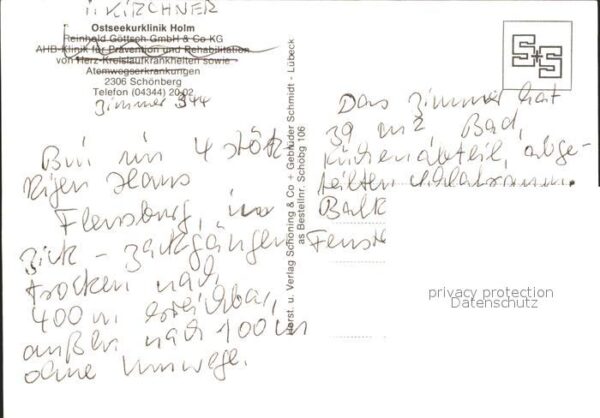 ü KIRCHNER
Ostseekurklinik Holm
Reinhold Göttsch GmbH & Co KG
AHB-Klinik für Prävention und Rehabilitation
von Herz-Kreislaufkrankheiten sowie
Atemwegserkrankungen
2306 Schönberg
Telefon (04344) 20 02
Zimmer 344
Bin im 4 stök-
kigen Haus
Flensburg, im
Zick-Zackgängen
trocken nach
400 m erreichbar,
außen nach 100 m
ohne Umwege.
Horst. u. Verlag Schöning & Co + Gebrüder Schmidt - Lübeck
as Bestellnr. Schobg 106
S+S
Das Zimmer hat
39 m2 Bad,
Küchenabteil, abge-
teilten Schlafraum.
Balk
Fenste
privacy protection
Datenschutz